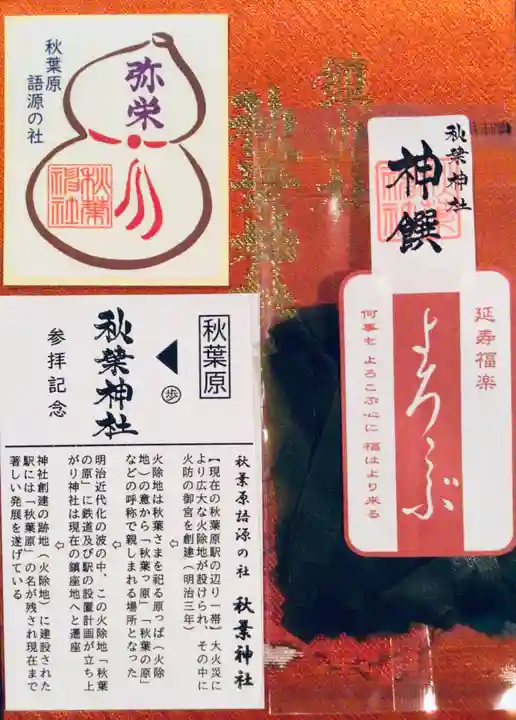 秋葉原
語源の社
弥栄
秋葉
神社
秋葉神社
神饌
延寿福楽
よろこぶ
何事も よろこぶ心に 福はより来る
秋葉原
歩
秋葉神社
参拝記念
秋葉原語源の社 秋葉神社
【現在の秋葉原駅の辺り一帯】大火災に
より広大な火除地が設けられ、その中に
火防の御宮を創建(明治三年)
火除地は秋葉さまを祀る原っぱ(火除
地)の意から「秋葉っ原」「秋葉の原」
などの呼称で親しまれる場所となった
明治近代化の波の中、この火除地「秋葉
の原」に鉄道及び駅の設置計画が立ち上
がり神社は現在の鎮座地へと遷座
神社創建の跡地(火除地)に建設された
駅には「秋葉原」の名が残され現在まで
著しい発展を遂げている